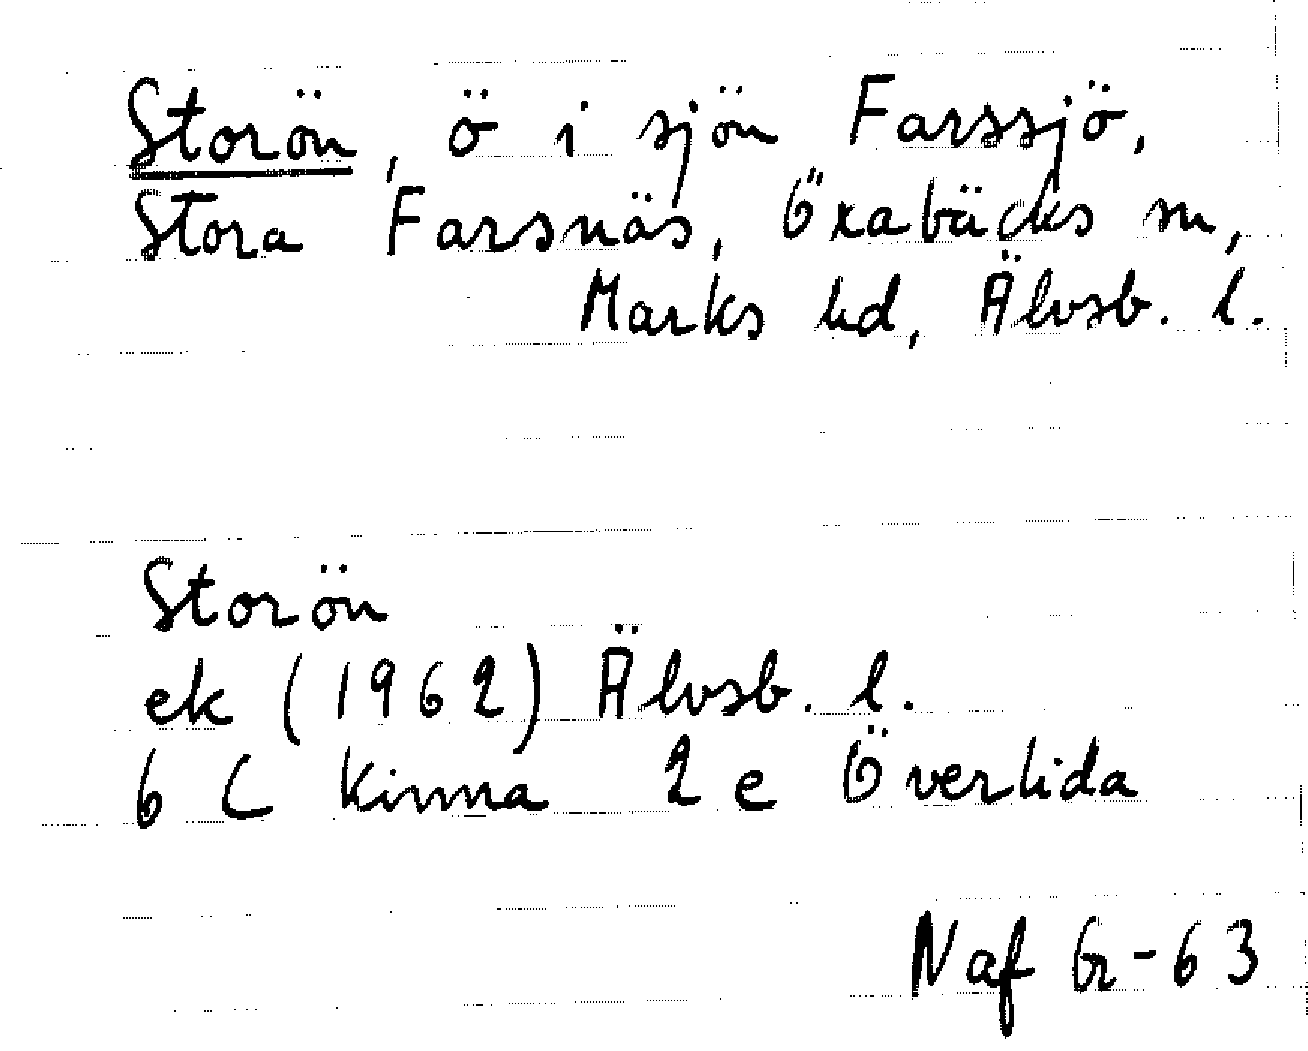 Storön, ö i sjön Farssjö,
Stora Farsnäs, Öxabäcks sn,
Marks hd, Älvsb. l.
Storön
ek (1962) Älvsb. l.
6 C Kinna 2 e Överlida
Naf Gr-63